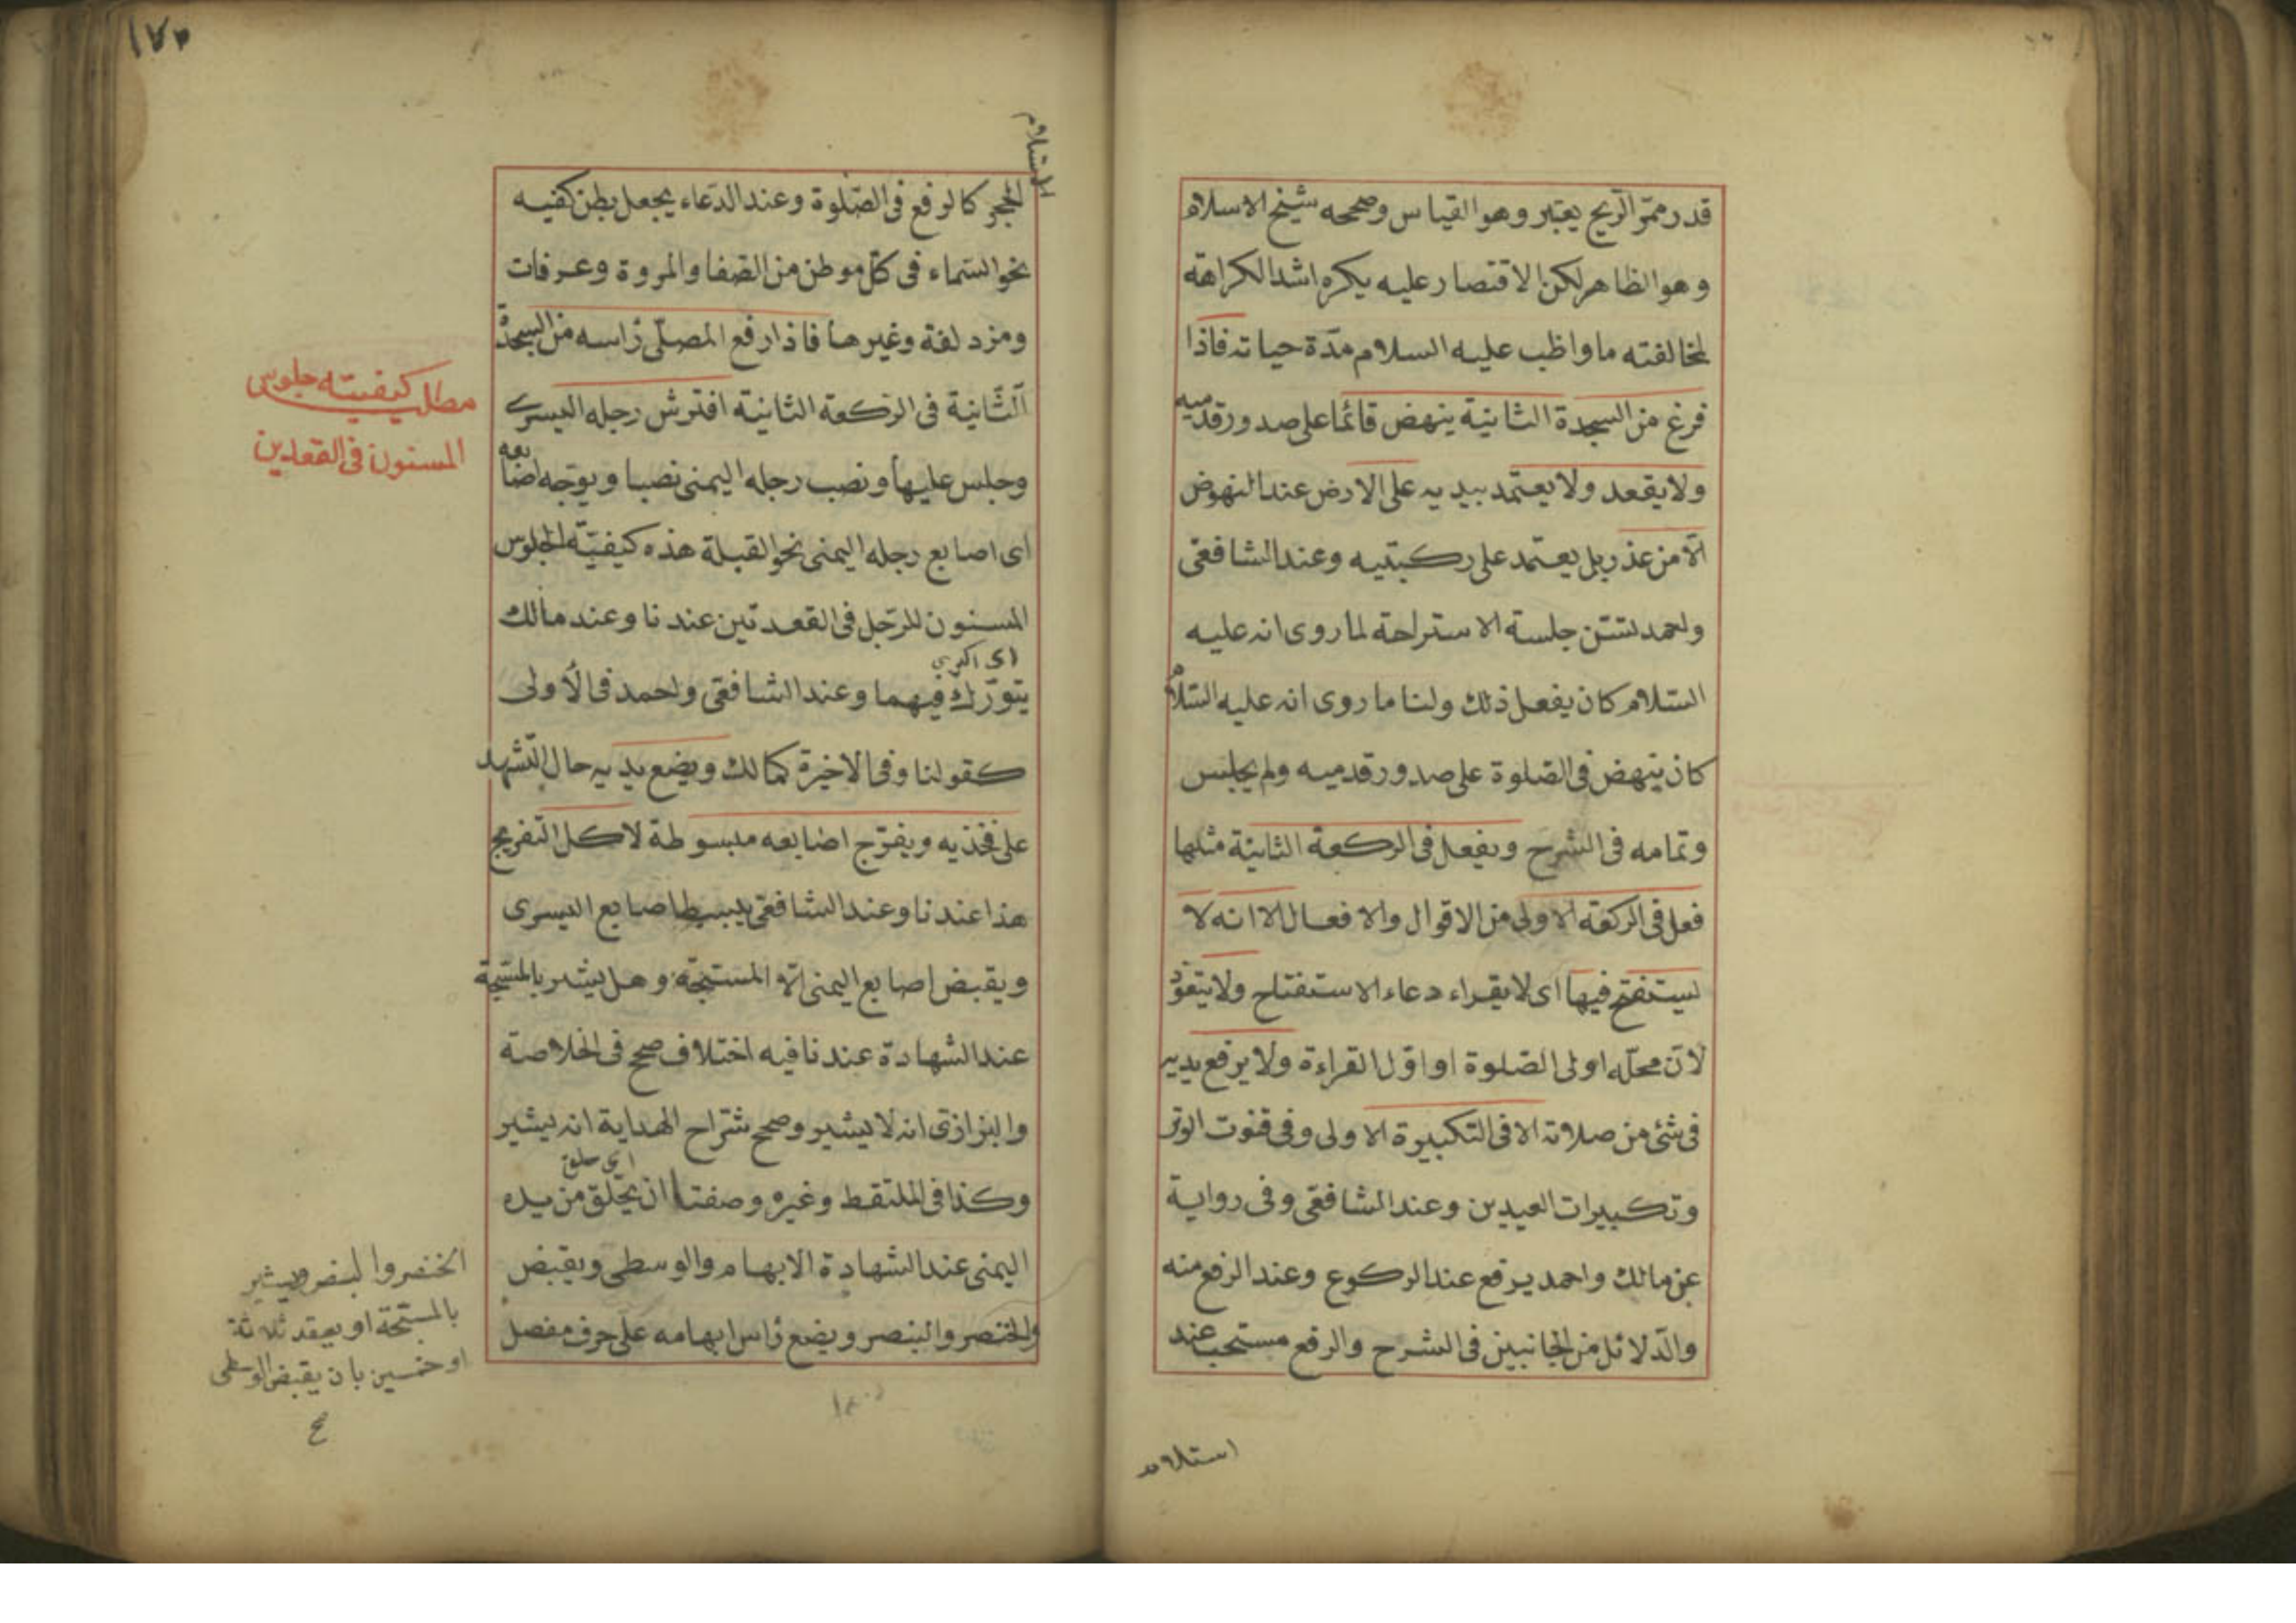 قدر ممرّ الريح يعتبر وهو القياس وصححه شيخ الاسلام
وهو الظاهر لكن الاقتصار عليه يكره اشد الكراهة
لمخالفته ما واظب عليه السلام مدّة حياته فاذا
فرغ من السجدة الثانية ينهض قائما على صدور قدميه
ولا يقعد ولا يعتمد بيديه على الارض عند النهوض
الّا من عذر بل يعتمد على ركبتيه وعند الشافعى
واحمد تستنّ جلسة الاستراحة لما روى انه عليه
السّلام كان يفعل ذلك ولنا ما روى انه عليه السّلام
كان ينهض فى الصّلوة على صدور قدميه ولم يجلس
وتمامه فى الشرح ويفعل فى الركعة الثانية مثلما
فعل فى الركعة الاولى من الاقوال والافعال الا انه لا
يستفتح فيها اى لا يقراء دعاء الاستفتاح ولا يتعوّذ
لانّ محلّه اولى الصّلوة او اوّل القراءة ولا يرفع يديه
فى شئ من صلاته الا فى التكبيرة الاولى وفى قنوت الوتر
وتكبيرات العيدين وعند الشافعى وفى رواية
عن مالك واحمد يرفع عند الركوع وعند الرفع منه
والدّلائل من الجانبين فى الشرح والرفع مستحب عند
استلام
١٧٢
استلام
الحجر كالرفع فى الصّلوة وعند الدّعاء يجعل بطن كفيه
نحو السّماء فى كلّ موطن من الصّفا والمروة وعرفات
ومزدلفة وغيرها فاذا رفع المصلّى رأسه من السجدة
الثّانية فى الركعة الثانية افترش رجله اليسرى
وجلس عليها ونصب رجله اليمنى نصبا ويوجّه اصابعه
اى اصابع رجله اليمنى نحو القبلة هذه كيفيّة الجلوس
المسنون للرّجل فى القعدتين عندنا وعند مالك
يتورّك فيهما وعند الشافعى واحمد فى الأولى
كقولنا وفى الاخيرة كمالك ويضع يديه حال التّشهد
على فخذيه ويفرّج اصابعه مبسوطة لا كل التفريج
هذا عندنا وعند الشافعى يبسط اصابع اليسرى
ويقبض اصابع اليمنى الّا المسبّحة وهل يشير بالمسبّحة
عند الشهادة عندنا فيه اختلاف صحح فى الخلاصة
والبزازى انه لا يشير وصحح شرّاح الهداية انه يشير
وكذا فى الملتقط وغيره وصفتها ان يحلّق من يده
اليمنى عند الشهادة الابهام والوسطى ويقبض
والخنصر والبنصر ويضع رأس ابهامه على حرف مفصل
مطلب كيفيته جلوس
المسنون فى القعدتين
الخنصر والبنصر ويشير
بالمسبّحة او يعقد ثلاثة
او خمسين بان يقبض الوسطى